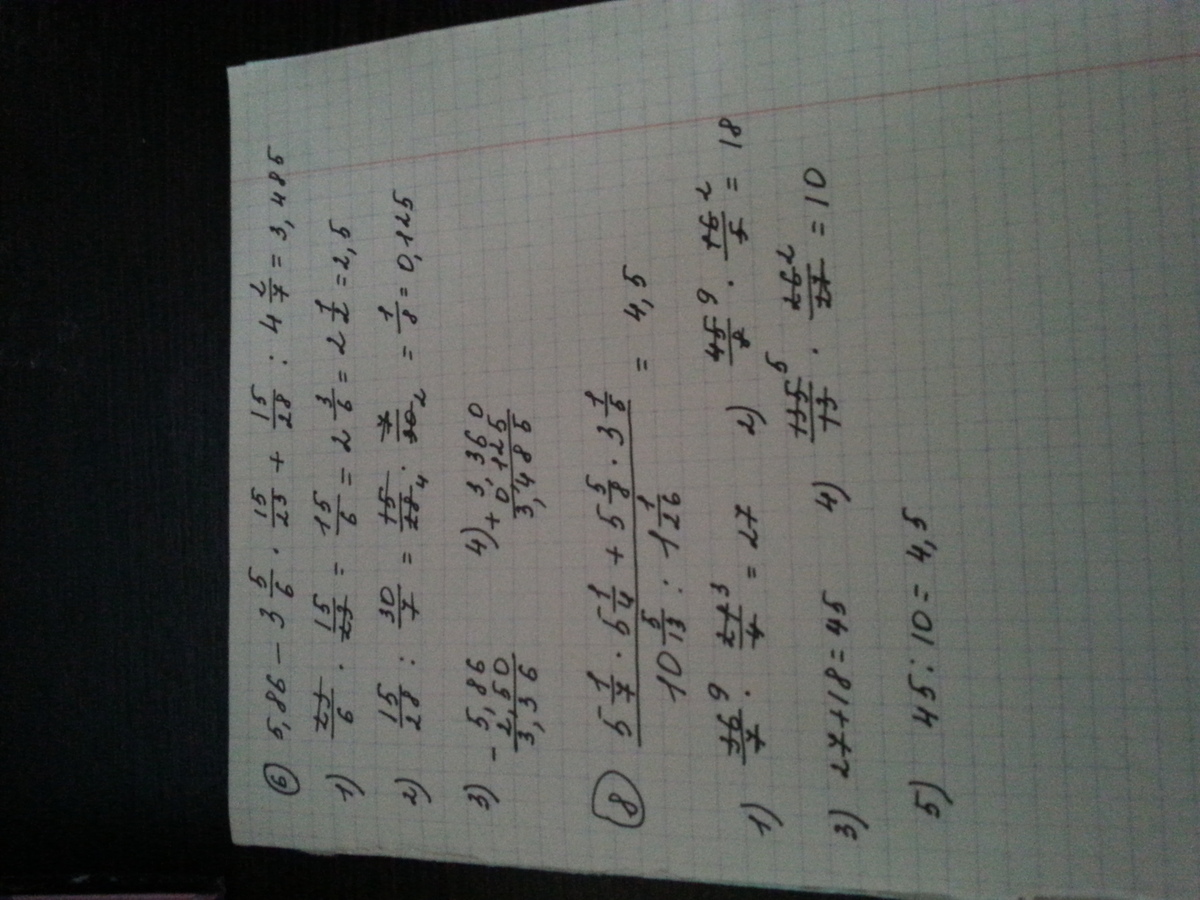 6 5,86 − 3 5/6 · 15/23 + 15/28 : 4 2/7 = 3,485
1) 23/6 · 15/23 = 15/6 = 2 3/6 = 2 1/2 = 2,5
2) 15/28 : 30/7 = 15/28 4 · 7/30 2 = 1/8 = 0,125
3) − 5,86 4) + 3,360
2,50 0,125
3,36 3,485
8 5 1/7 · 5 1/4 + 5 5/8 · 3 1/5 = 4,5
10 5/13 : 1 1/26
1) 36/7 9 · 21/4 3 = 27 2) 45/8 9 · 16/5 2 = 18
3) 27+18=45 4) 135/13 5 · 26/27 2 = 10
5) 45:10=4,5